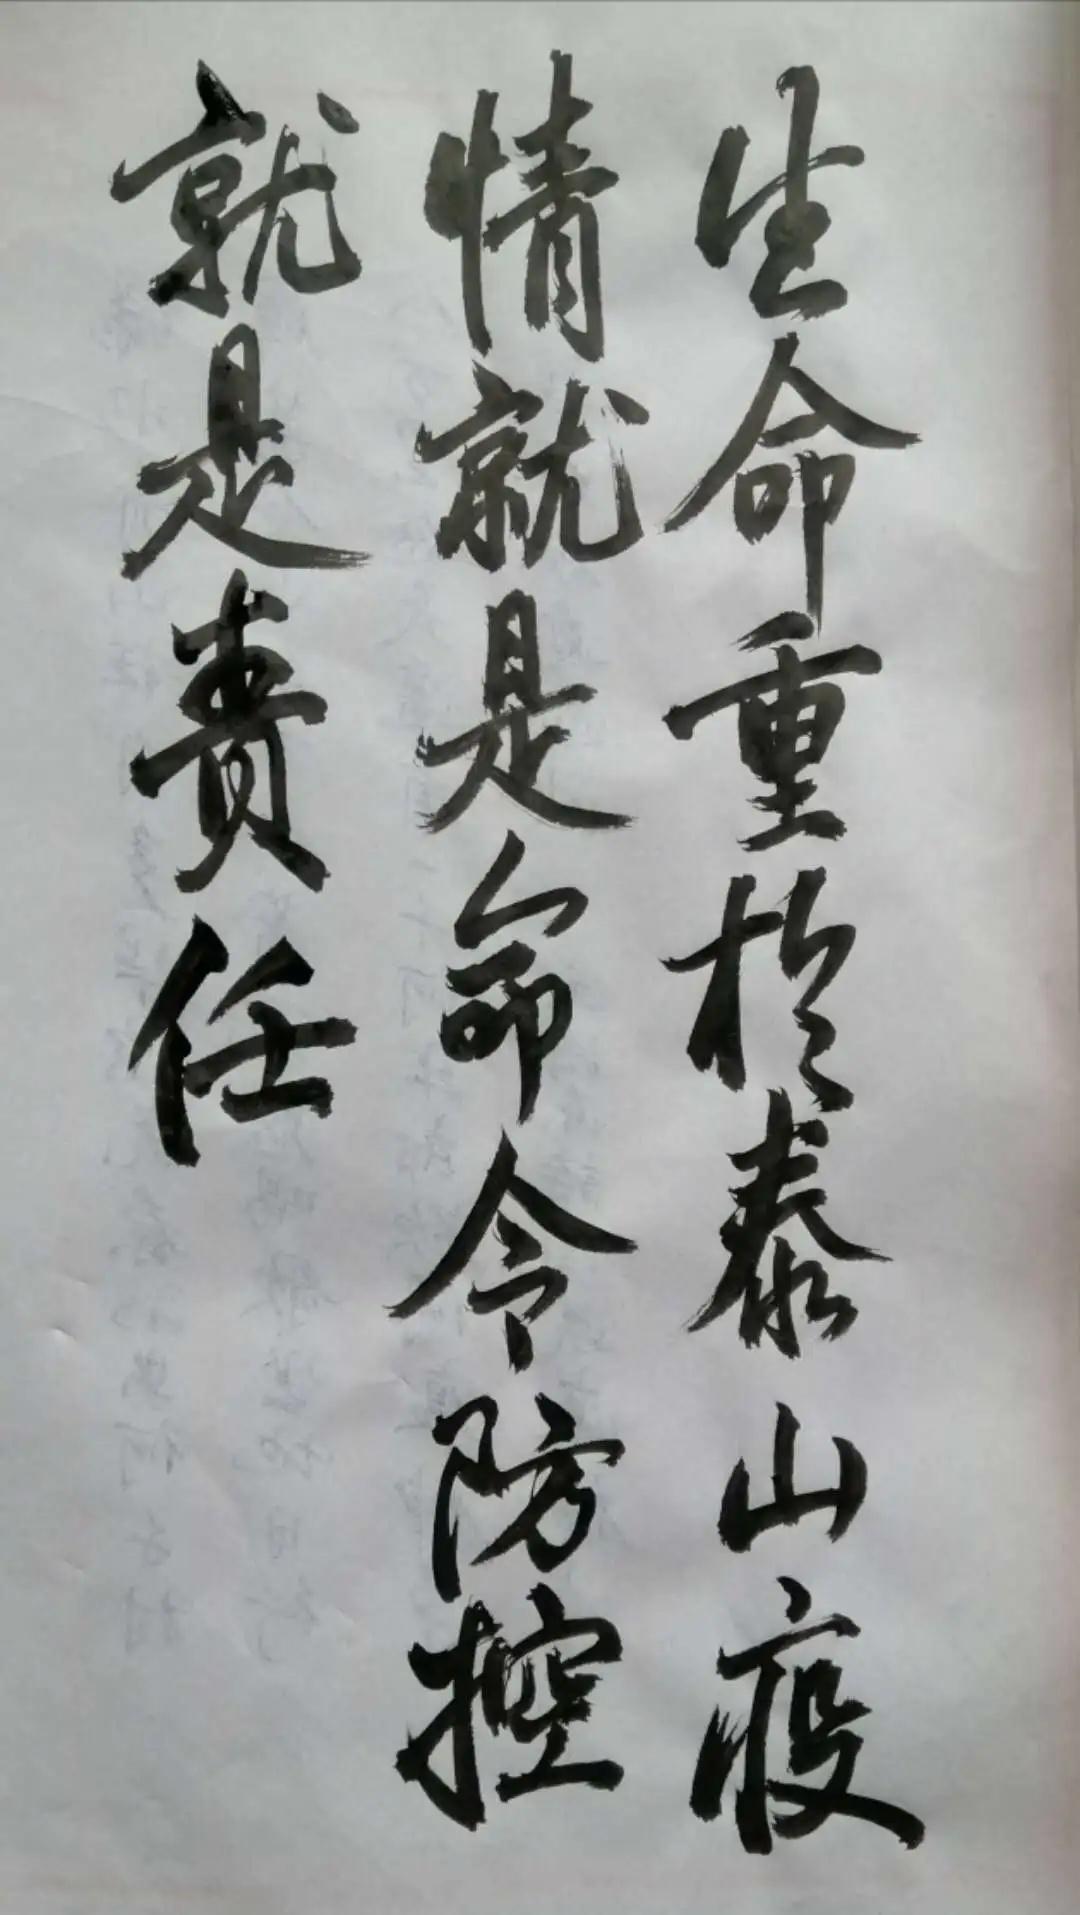 生命重於泰山疫
情就是命令防控
就是责任